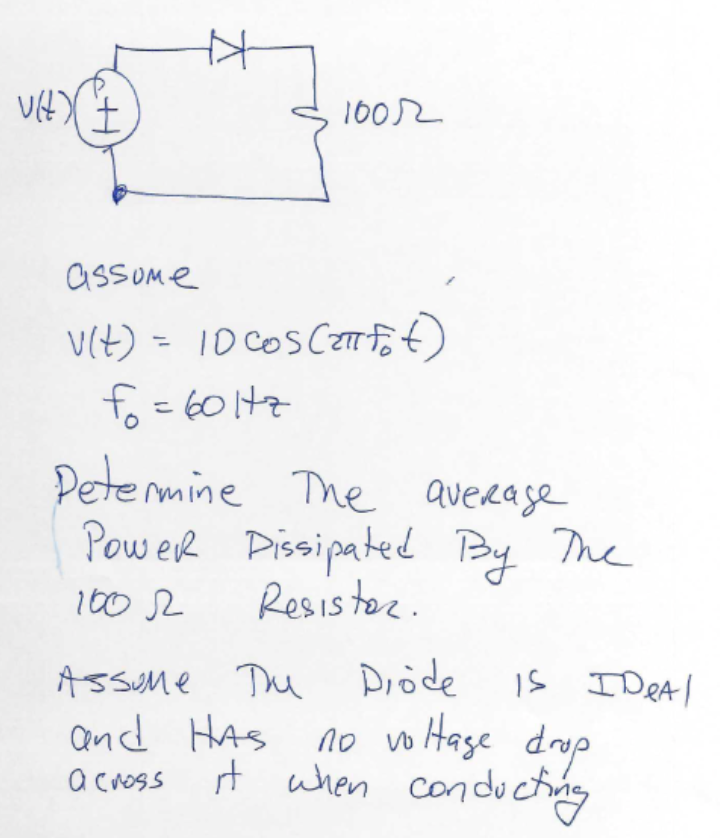 v(t)
+
100Ω
assume
v(t) = 10 cos(2πf₀t)
f₀ = 60 Hz
Determine The average
Power Dissipated By The
100 Ω Resistor.
Assume The Diode is IDeAl
and HAs no voltage drop
across it when conducting